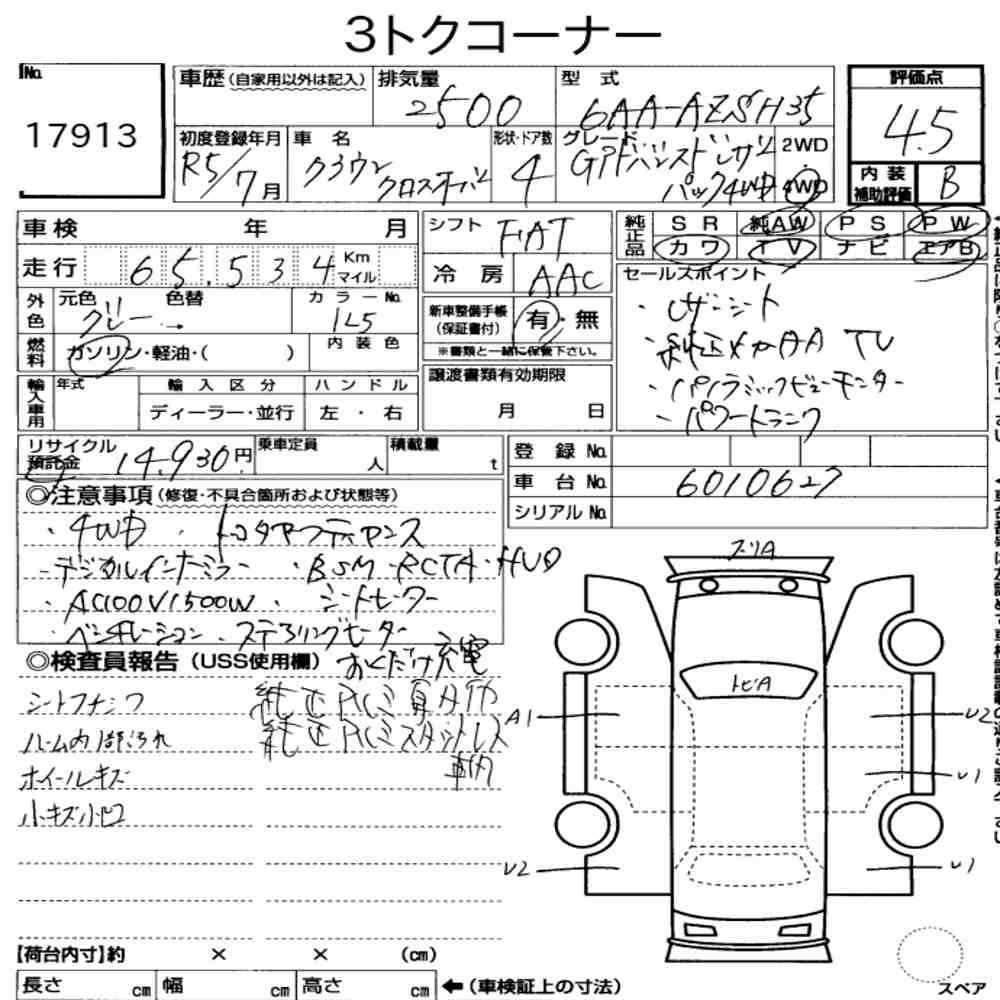 3トクコーナー
No. 17913
車歴 (自家用以外は記入)
排気量 2500
型式 6AA-AZSH35
評価点 4.5
初度登録年月 R5/7月
車名 クラウンクロスオーバー
形状・ドア数 4
グレード Gアドバンストレザーパック4WD
2WD 4WD
内装補助評価 B
車検 年 月
シフト FAT
純正品 SR 純AW PS PW
カワ TV ナビ エアB
走行 65,534 Km マイル
冷房 AAC
セールスポイント
・レザーシート
・純正メーカAA TV
・パノラミックビューモニター
・パワートランク
外色 元色 グレー 色替 カラーNo. 1L5
新車整備手帳(保証書付) 有・無
※書類と一緒に保管下さい。
燃料 ガソリン・軽油・( ) 内装色
輸入車用 年式 輸入区分 ハンドル
ディーラー・並行 左・右
譲渡書類有効期限
月 日
リサイクル預託金 14,930円
乗車定員 人
積載量 t
登録No.
車台No. 6010627
シリアルNo.
◎注意事項(修復・不具合箇所および状態等)
・4WD ・トヨタチームメイトアドバンス
・デジタルインナーミラー ・BSM・RCTA・HUD
・AC100V1500W ・シートヒーター
・ベンチレーション ステアリングヒーター
おくだけ充電
◎検査員報告(USS使用欄)
純正アルミ夏タイヤ
純正アルミスタッドレス
車内
ルーム内1部汚れ
ホイールキズ
小キズ小凹
スリA
トビA
A1
U2
U1
U2
U1
【荷台内寸】約 × × (cm)
長さ cm 幅 cm 高さ cm ←(車検証上の寸法)
スペア